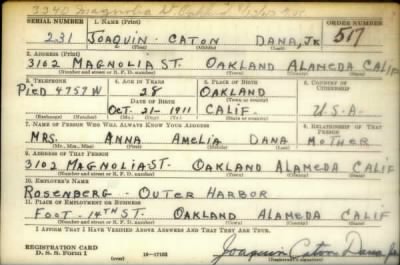 3240 Magnolia St
SERIAL NUMBER 1. NAME (Print) ORDER NUMBER
231 JOAQUIN - CATON DANA, JR 517
(First) (Middle) (Last)
2. ADDRESS (Print)
3102 MAGNOLIA ST. OAKLAND ALAMEDA CALIF
(Number and street or R. F. D. number) (Town) (County) (State)
3. TELEPHONE 4. AGE IN YEARS 5. PLACE OF BIRTH 6. COUNTRY OF CITIZENSHIP
PIED 4757W 28 OAKLAND
DATE OF BIRTH (Town or county)
OCT. 21 - 1911 CALIF. U.S.A.
(Exchange) (Number) (Mo.) (Day) (Yr.) (State or country)
7. NAME OF PERSON WHO WILL ALWAYS KNOW YOUR ADDRESS 8. RELATIONSHIP OF THAT PERSON
MRS. ANNA AMELIA DANA MOTHER
(Mr., Mrs., Miss) (First) (Middle) (Last)
9. ADDRESS OF THAT PERSON
3102 MAGNOLIA ST. OAKLAND ALAMEDA CALIF
(Number and street or R. F. D. number) (Town) (County) (State)
10. EMPLOYER'S NAME
ROSENBERG - OUTER HARBOR
11. PLACE OF EMPLOYMENT OR BUSINESS
FOOT - 14TH ST. OAKLAND ALAMEDA CALIF
(Number and street or R. F. D. number) (Town) (County) (State)
I AFFIRM THAT I HAVE VERIFIED ABOVE ANSWERS AND THAT THEY ARE TRUE.
REGISTRATION CARD
D. S. S. Form 1 16-17105 Joaquin Caton Dana Jr.
(Registrant's signature)